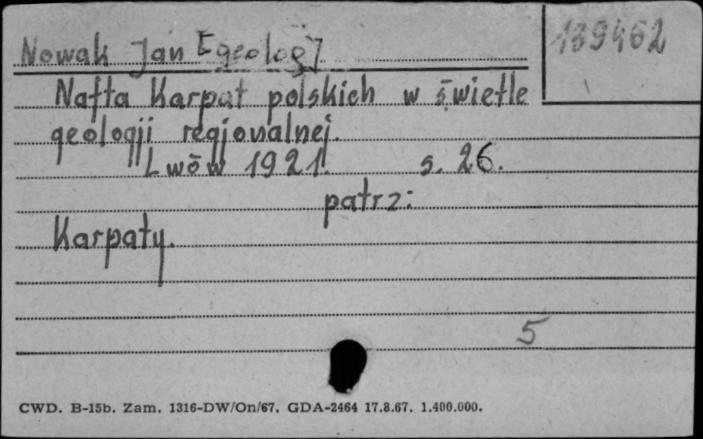 139462
Nowak Jan [geolog]
Nafta Karpat polskich w świetle
geologji regjonalnej.
Lwów 1921. s. 26.
patrz:
Karpaty.
5
CWD. B-15b. Zam. 1316-DW/On/67. GDA-2464 17.8.67. 1.400.000.